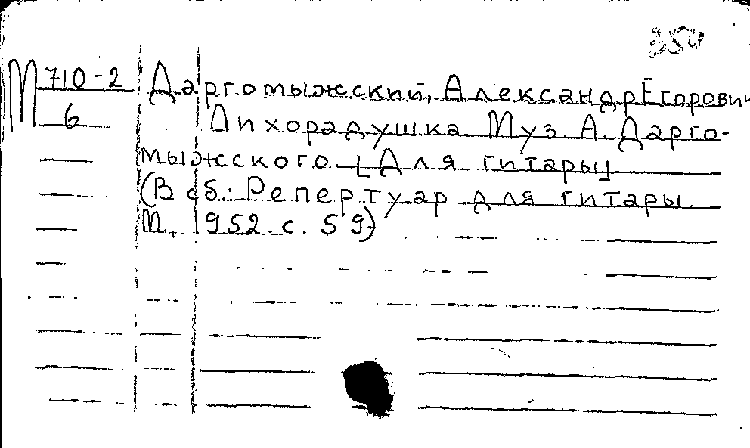 354
М 710-2 Даргомыжский, Александр Егорович
6 Лихорадушка Муз. А. Дарго-
мыжского [Для гитары]
(В сб.: Репертуар для гитары
М. 1952 с. 59)